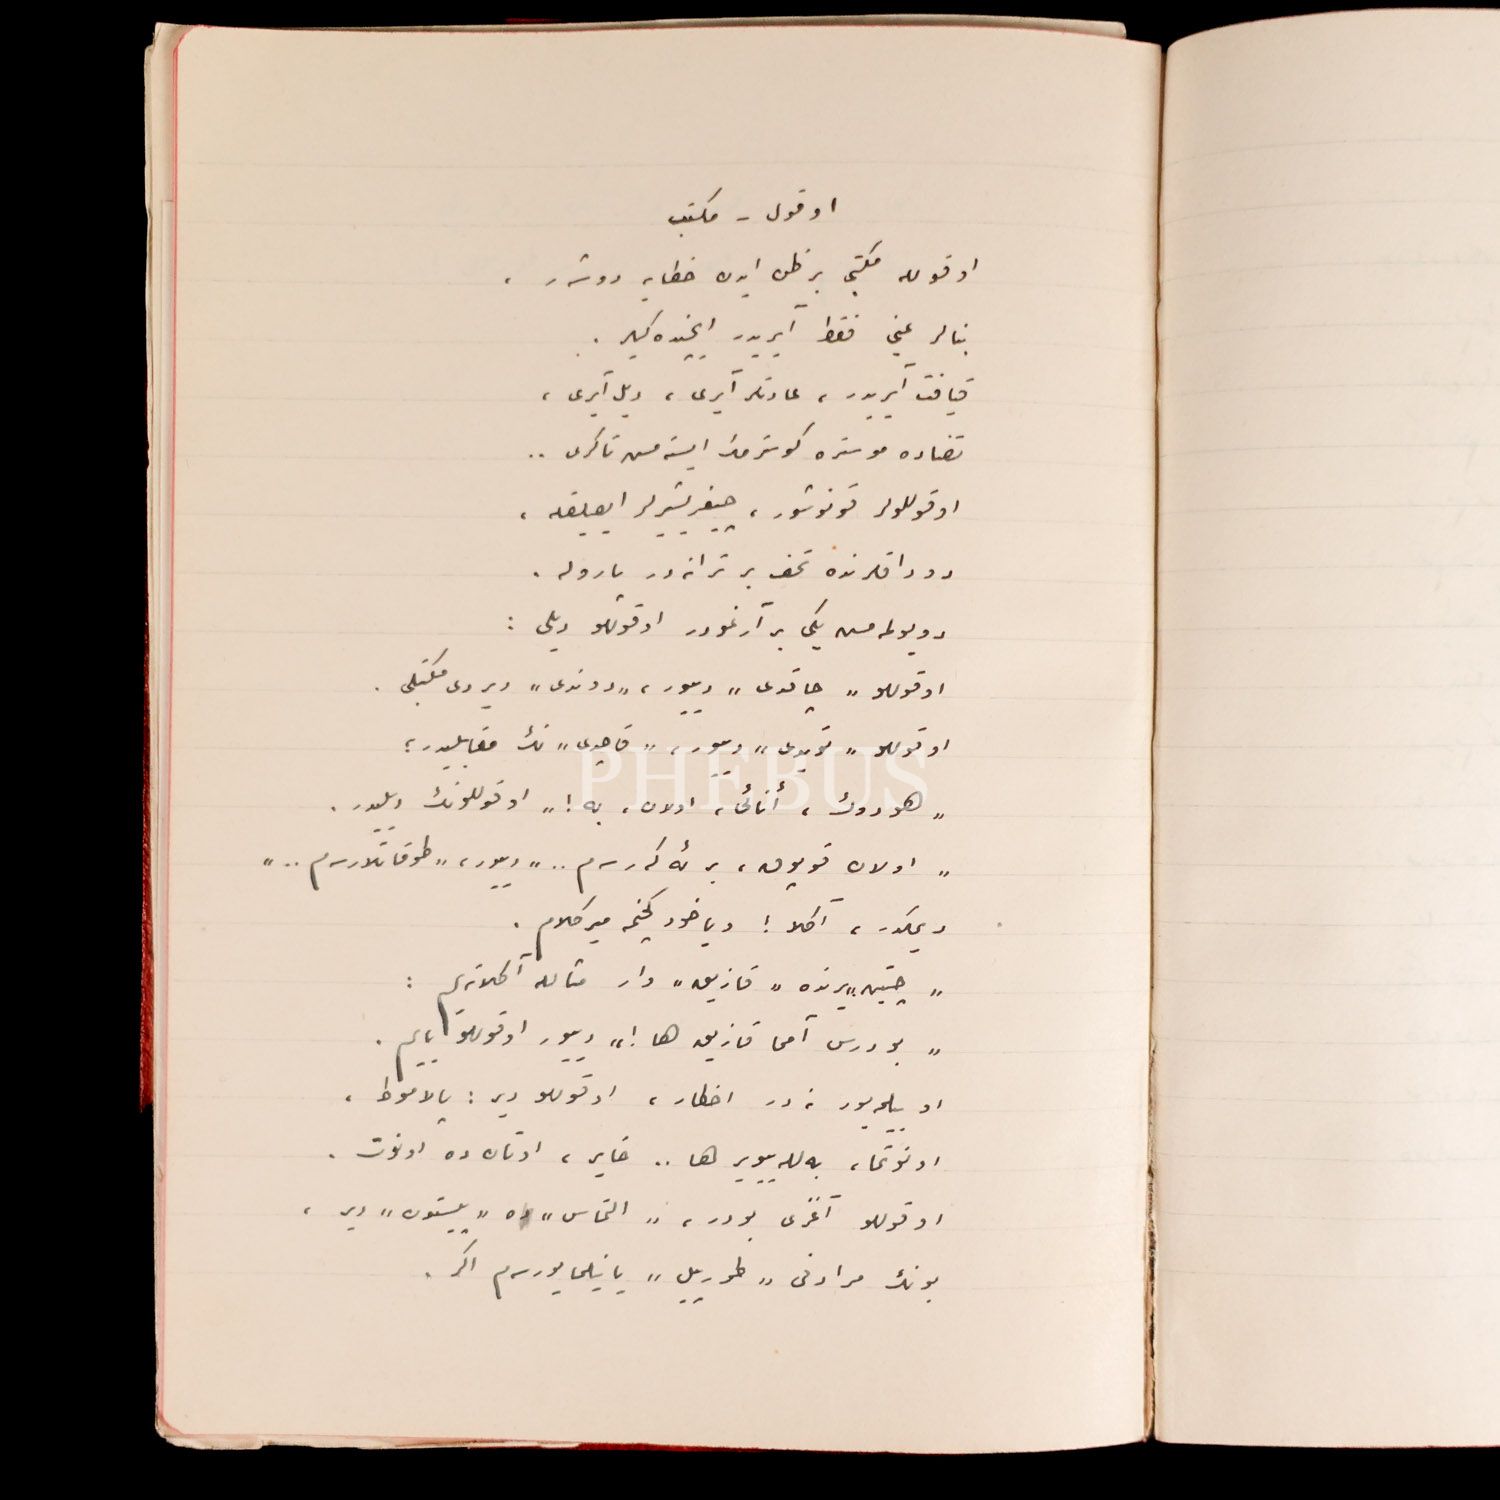 اوقول - مكتب
اوقولله مكتبى بر ظن ايدن خطايه دوشر ،
بنالر عينى فقط آيريدر ايچنده كيلر .
قيافت آيريدر ، عادتلر آيرى ، ديل آيرى ،
تضاده موستره كوسترمك ايسته مش تاكرى ..
اوقوللولر قونوشور ، چيغريشيرلر ايصليقله ،
دوداقلرنده تحف بر ترانه در پاروله .
دويولمه مش يكى بر آرغودر اوقوللو ديلى :
اوقوللو " چاقدى " دييور ، " دوندى " ديردى مكتبلى .
اوقوللو " تويدى " دييور ، " قاچدى " نك مقابليدر ؛
" هودوك ، أنائى ، اولان ، به ! " اوقوللونك ديليدر .
" اولان قوپوق ، بر ئه كررسه م .. " دييور ، " طوقاتلارسه م .. "
ديمكدر ، آكلا ! وياخود كچنمه ميركلام .
" چتين " يرنده " قازيق " وار مثالله آكلاته يم :
" بو درس آمما قازيق ها ! " دييور اوقوللو بايم .
او بيلمه يور نه در اخطار ، اوقوللو دير : پالاموط ،
اونوتما ، به لله يييوير ها .. خاير ، اوتان ده اونوت .
اوقوللو آغزى بودر ، " التماس " ه " پيستون " دير ،
بونك مرادفى " طورپيل " يا يا&#x200C;نيلمايورسه م اكر .
PHEBUS